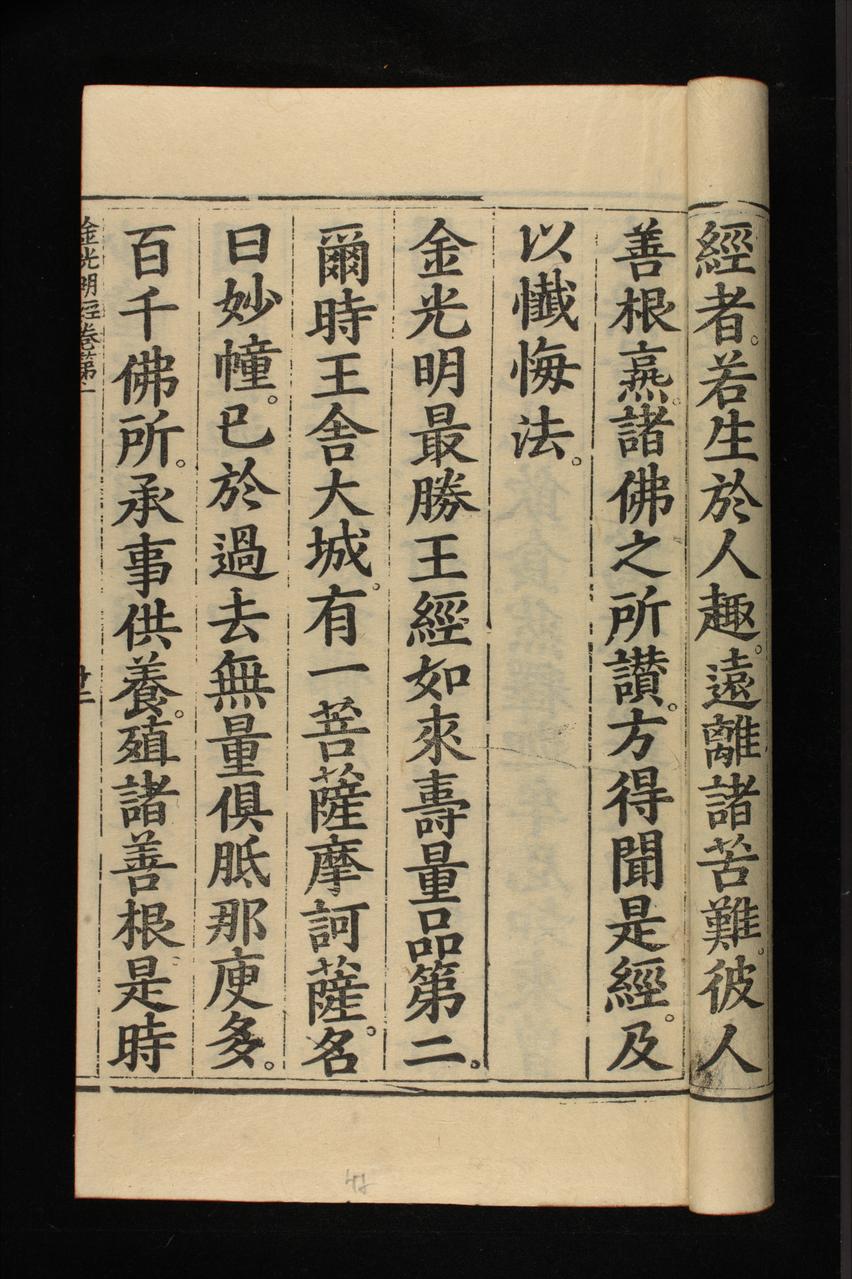 經者。若生於人趣。遠離諸苦難。彼人
善根熹。諸佛之所讃。方得聞是經。及
以懺悔法。
金光明最勝王經如來壽量品第二。
爾時王舍大城。有一菩薩摩訶薩。名
曰妙幢。已於過去無量俱胝那庾多。
百千佛所。承事供養。殖諸善根是時
金光明經卷第一
廿二